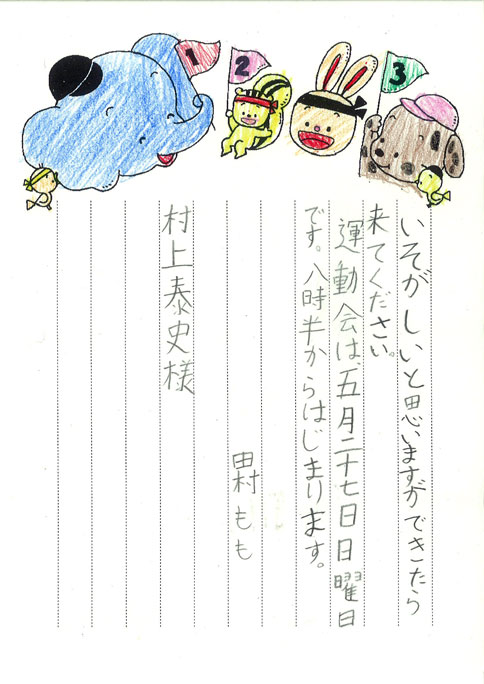 1
2
3
いそがしいと思いますができたら
来てください。
運動会は、五月二十七日日曜日
です。八時半からはじまります。
田村もも
村上泰史様